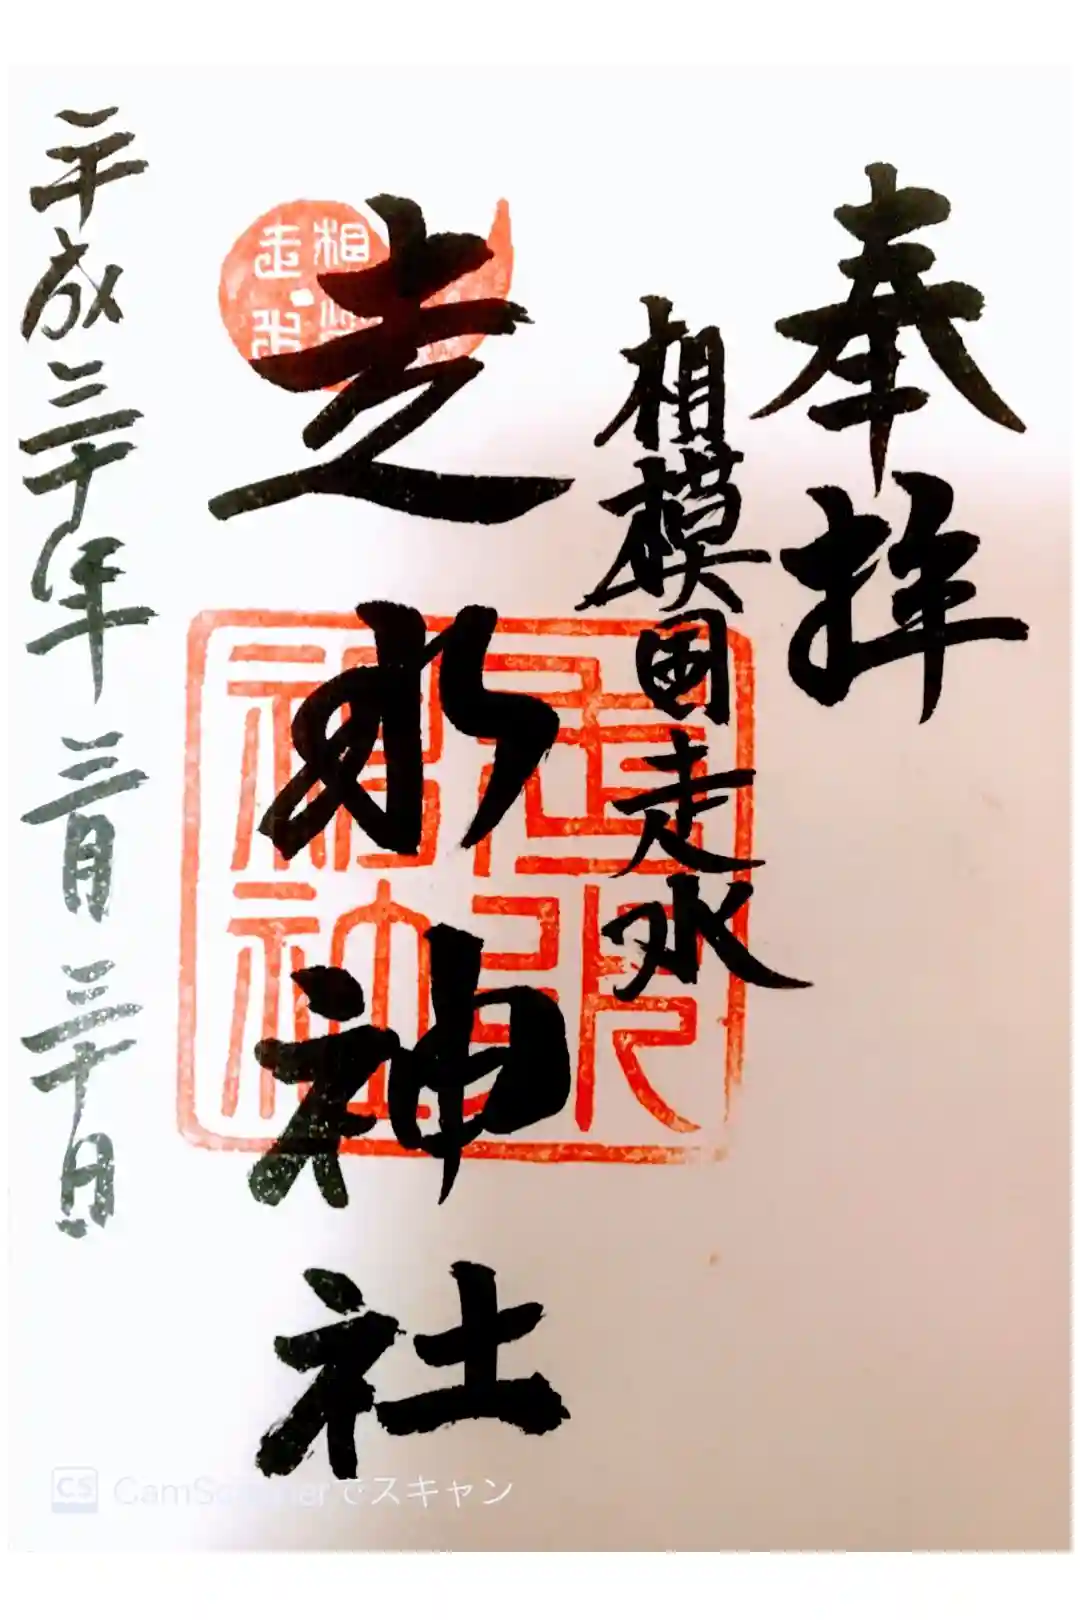 奉拝
相模国走水
走水神社
平成三十年三月三十日
相模
走水
走水
神社
CS CamScannerでスキャン